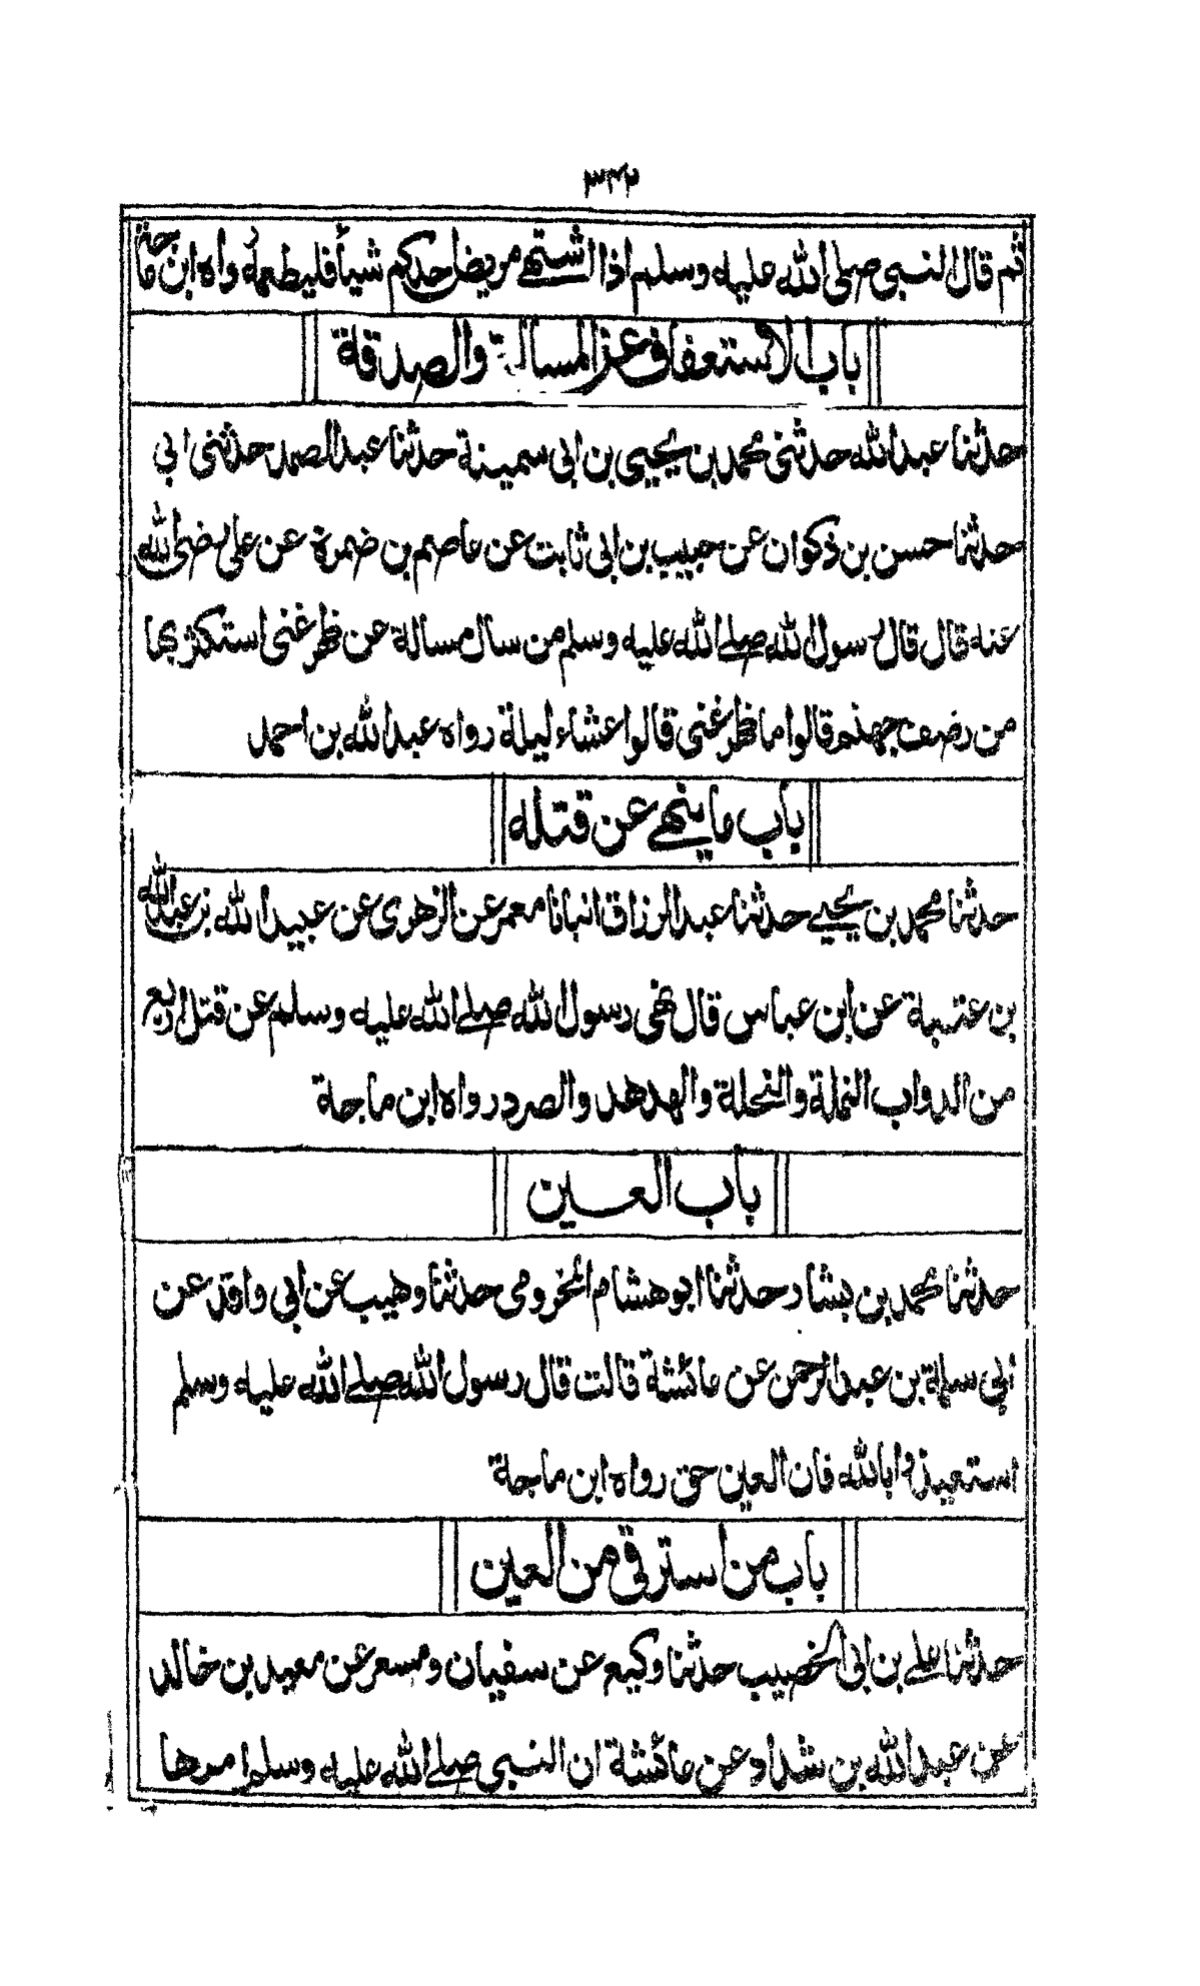 ٣٤٢
ثم قال النبي صلى الله عليه وسلم اذا اشتهى مريض احدكم شيأ فليطعمه رواه ابن ماجة
باب الاستعفاف عن المسالة والصدقة
حدثنا عبد الله حدثنى محمد بن يحيى بن ابى سمينة حدثنا عبد الصمد حدثنى ابي
حدثنا حسن بن ذكوان عن حبيب بن ابى ثابت عن عاصم بن ضمرة عن على رضى الله
عنه قال قال رسول الله صلى الله عليه وسلم من سال مسالة عن ظهر غنى استكثر بها
من رضف جهنم قالوا ما ظهر غنى قالوا عشاء ليلة رواه عبد الله بن احمد
باب ما ينهى عن قتله
حدثنا محمد بن يحيى حدثنا عبد الرزاق انبانا معمر عن الزهرى عن عبيد الله بن عبد الله
بن عتبة عن ابن عباس قال نهى رسول الله صلى الله عليه وسلم عن قتل اربع
من الدواب النملة والنحلة والهدهد والصرد رواه ابن ماجة
باب العين
حدثنا محمد بن بشار حدثنا ابو هشام المخزومى حدثنا وهيب عن ابى واقد عن
ابى سلمة بن عبد الرحمن عن عائشة قالت قال رسول الله صلى الله عليه وسلم
استعيذوا بالله فان العين حق رواه ابن ماجة
باب من استرقى من العين
حدثنا على بن ابى الخصيب حدثنا وكيع عن سفيان ومسعر عن معبد بن خالد
عن عبد الله بن شداد عن عائشة ان النبى صلى الله عليه وسلم امرها